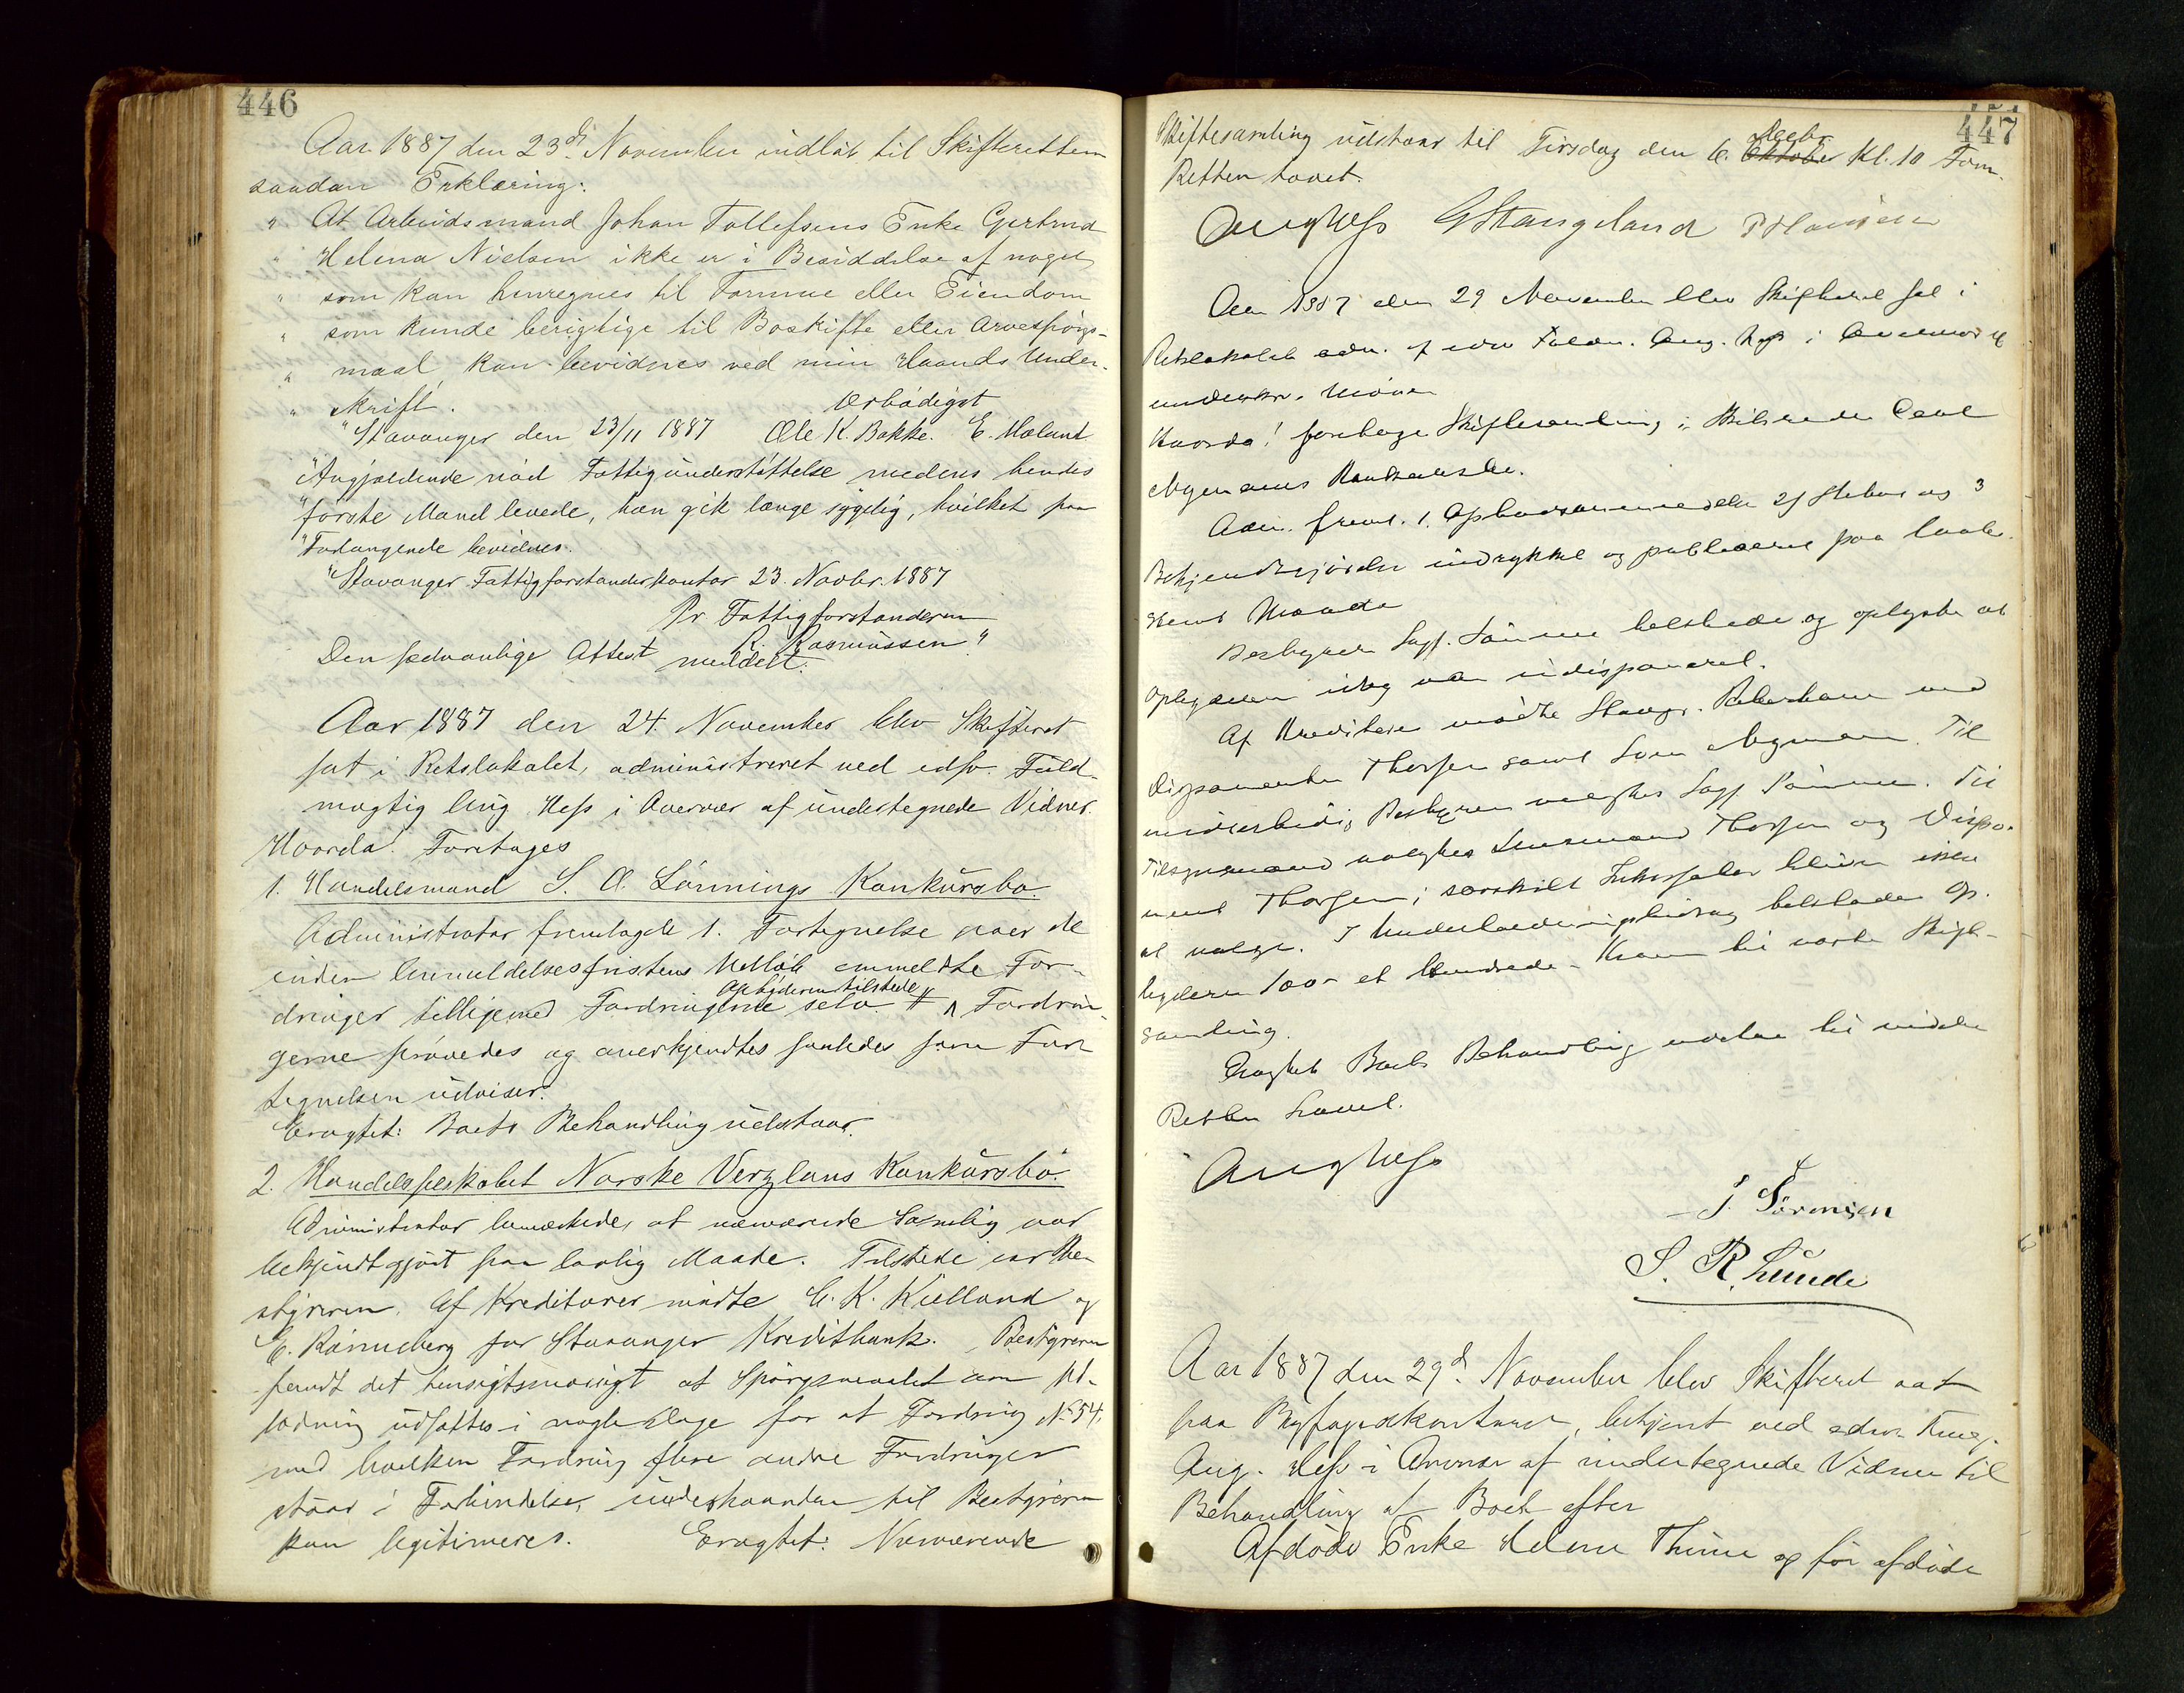 446
Aar 1887 den 23di November indlöb til Skifteretten
saadan Erklæring:
" At Arbeidsmand Johan Tollefsens Enke Gertrud
" Helena Nielsen ikke er i Besiddelse af noget
" som kan henregnes til Formue eller Eiendom
" som kunde berigtige til Boskifte eller Arvespörgs-
" maal kan bevidnes ved min Haands Under-
" skrift.
Ærbödigst
"Stavanger den 23/11 1887 Ole K. Bakke. E.
"Angjældende nöd Fattigunderstöttelse medens hendes
"förste Mand levede, han gik længe sygelig, hvilket paa
"Forlangende bevidnes.
"Stavanger Fattigforstanderkontor 23. Novbr. 1887
Pr Fattigforstanderen
R. Rasmussen"
Den sedvanlige Attest meddelt.
Aar 1887 den 24. November blev Skifteret
sat i Retslokalet, administreret ved edsv. Fuld-
mægtig Aug. Hess i Overvær af undertegnede Vidner.
Hvorda! Foretoges
1. Handelsmand S. A. Lönnings Konkursbo.
Administrator fremlagde 1. Fortegnelse over de
inden Anmeldelsesfristens Udlöb anmeldte For-
dringer tilligemed Fordringerne selv.
Opbyderen tilstede
Fordrin-
gerne prövedes og anerkjendtes saaledes som For
tegnelsen udviser.
Eragtet: Boets Behandling udstaar.
2. Handelsselskabet Norske Verzlans Konkursbo.
Administrator bemærkede, at nærværende Samling var
bekjendtgjort paa lovlig Maade. Tilstede var Be-
styreren. Af Kreditorer mödte C. K. Kielland og
E. Rönneberg for Stavanger Kreditbank. Bestyreren
fandt det hensigtsmæsigt at Spörgsmaalet om Ud-
lodning udsættes i nogle Dage for at Fordring No 54,
med hvilken Fordring flere andre Fordringer
staar i Forbindelse, underhaanden til Bestyreren
kan legitimeres. Eragtet: Nærværende
447
Skiftesamling udstaar til Tirsdag den 6. Oktober Decbr Kl. 10 Form.
Retten hævet.
Aug Hess GStangeland P Hansen
Aar 1887 den 29 November blev Skifteret sat i
Retslokalet adm. af edsv. Fuldm. Aug. Hess i Overvær af
underskr. Vidner
Hvorda! foretoges Skiftesamling i
Nymans Konkursbo.
Adm. freml. 1. 2) Stevne og 3
Bekjendtgjörelse indrykket og publiceret paa lovbe-
stemt Maade
Bestyrer Sagf. Sömme tilstede og oplyste at
indisponeret.
Af Kreditorer mödte Stavgr. ved
Disponenten Thorsen samt Nyman. Til
midlertidig Bestyrer valgtes Sagf. Sömme. Til
Tilsynsmand valgtes Thorsen og Dispo-
nent Thorsen;
at vælge. I Underholdningsbidrag tilstodes Op-
byderen 100 - et Hundrede - Kroner til næste Skifte-
samling.
Eragtet Boets Behandling udstaar til videre
Retten hævet.
Aug Hess
J. Sörensen
S. R. Lunde
Aar 1887 den 29d. November blev Skifteret sat
paa Byfogedkontoret, betjent ved edsv. Fmg.
Aug. Hess i Overvær af undertegnede Vidner til
Behandling af Boet efter
Afdöde Enke Helene Thime og för afdöde